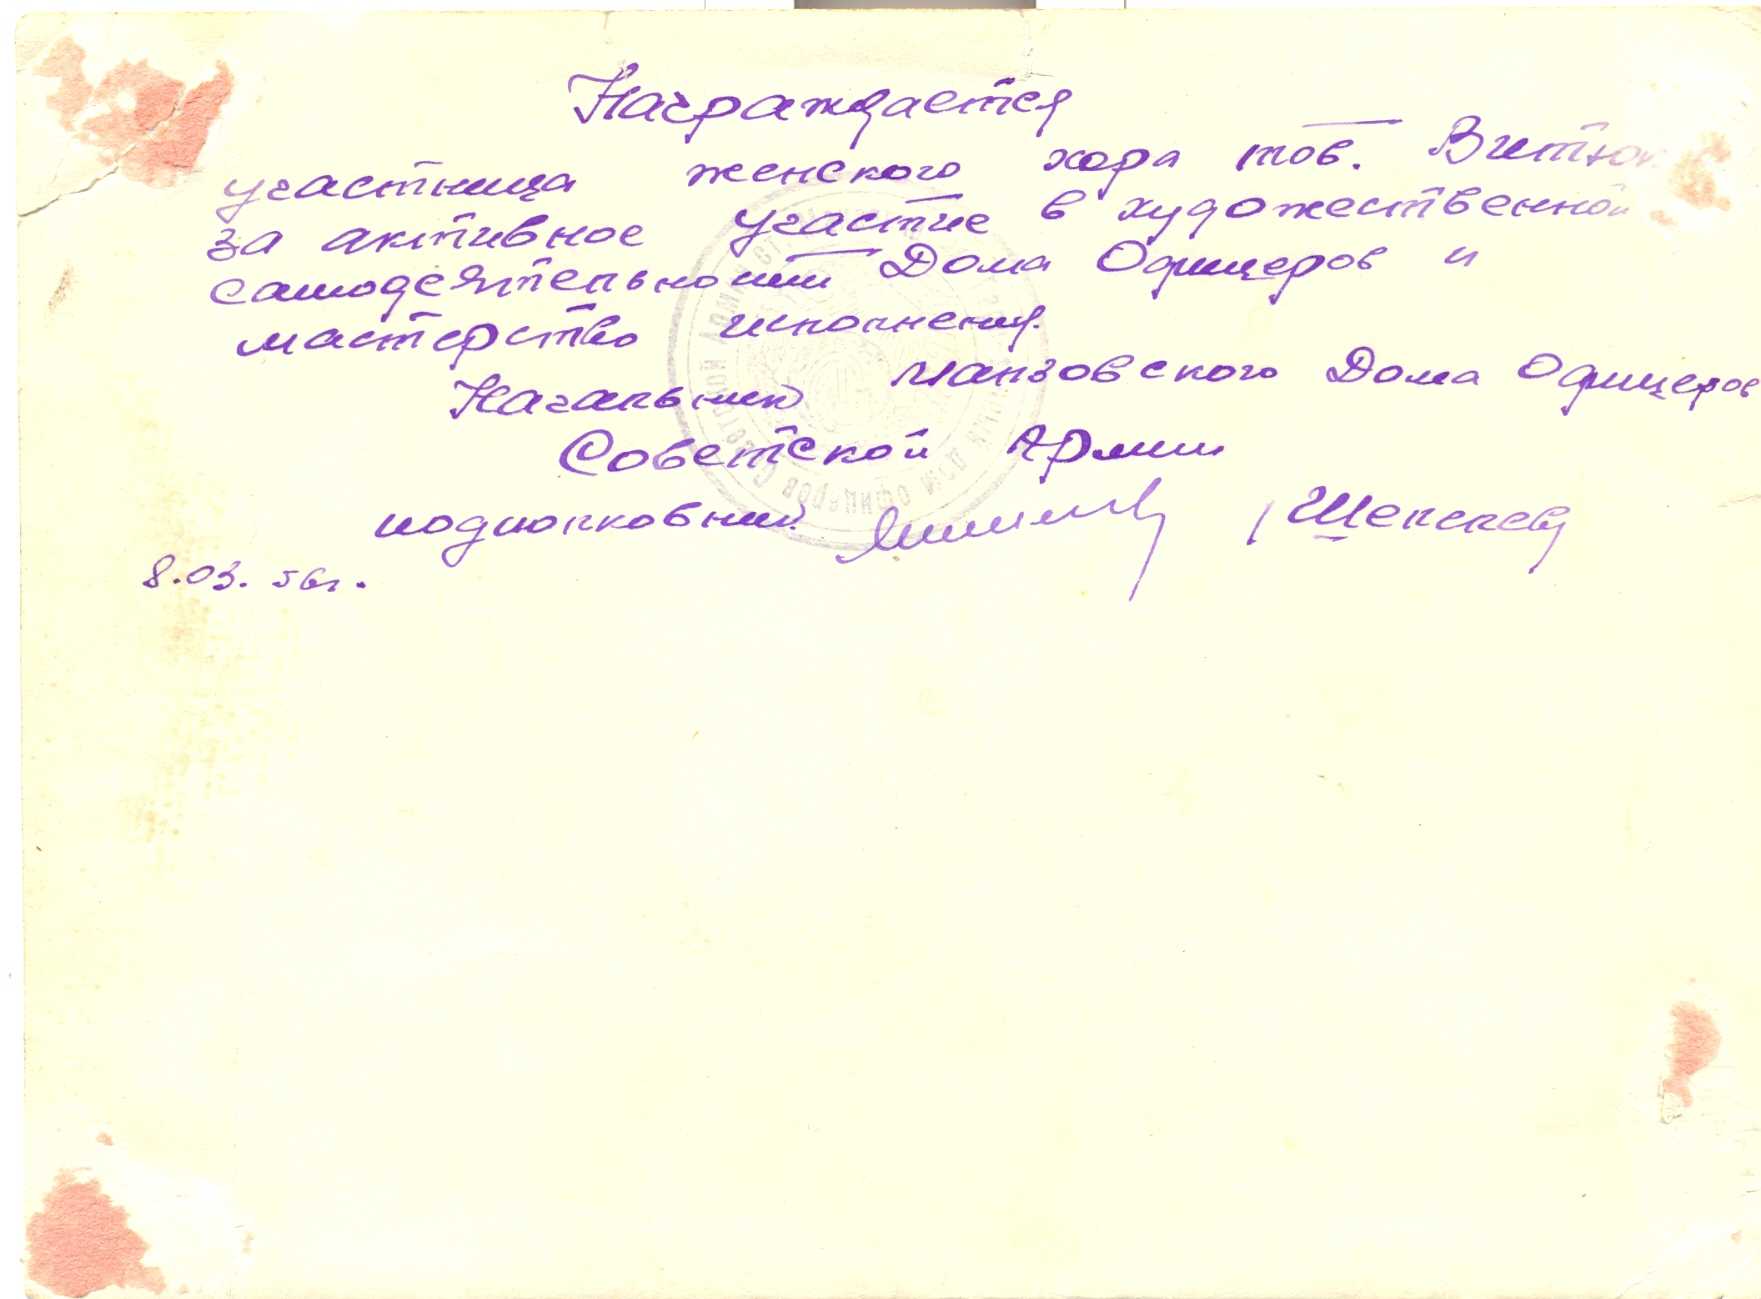 Награждается
участница женского хора тов. Витюк
за активное участие в художественной
самодеятельности Дома Офицеров и
мастерство исполнения.
Начальник Манзовского Дома Офицеров
Советской Армии
подполковник
8.03.56г.